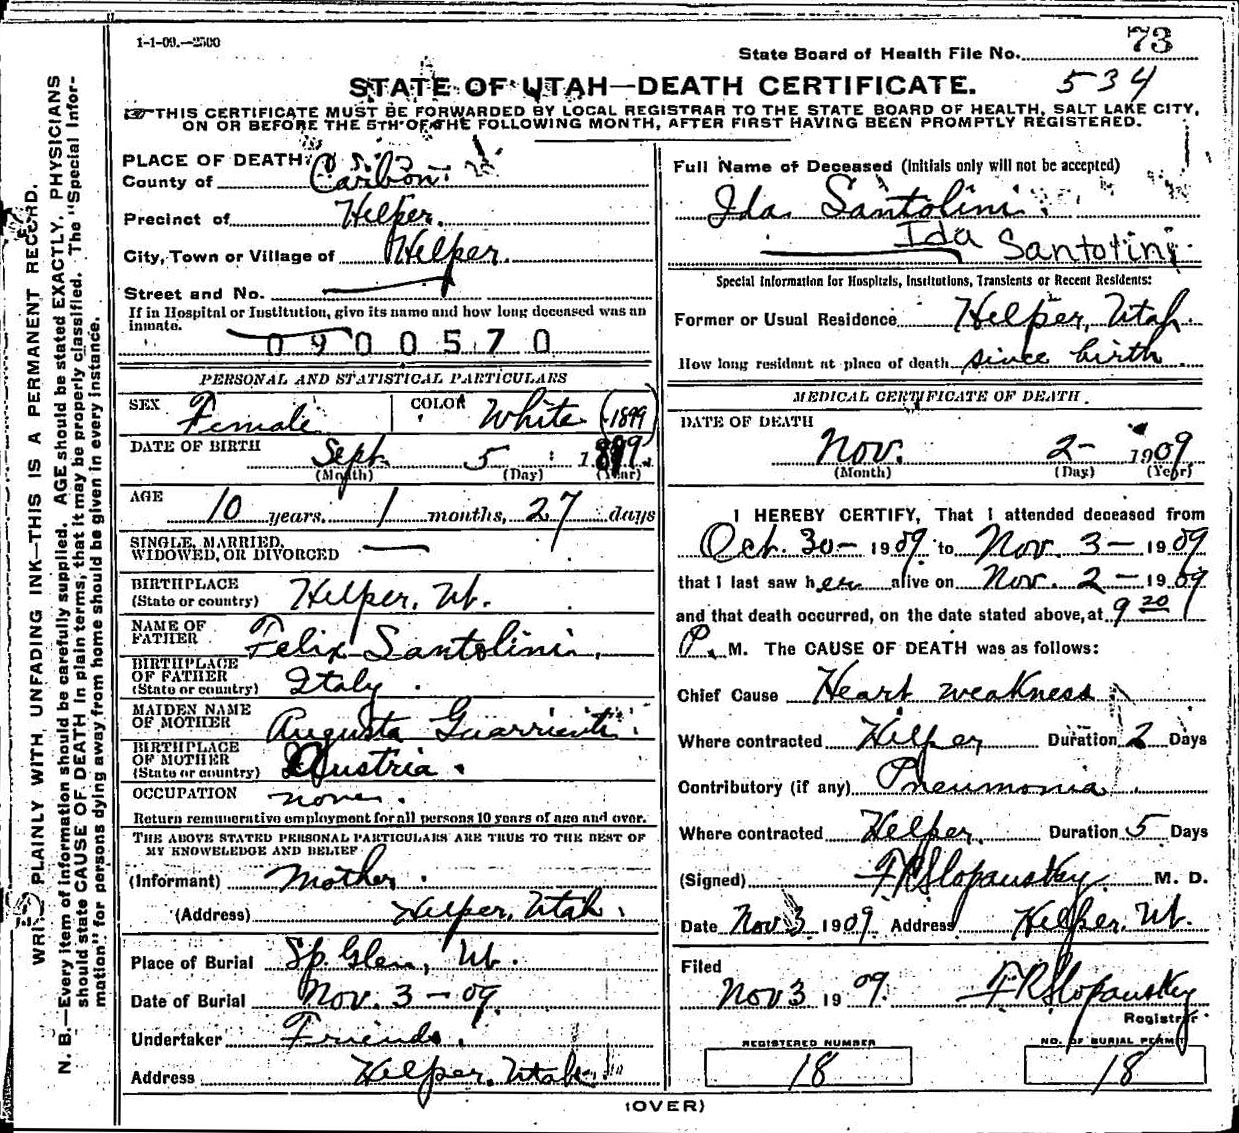 1-1-09.—2500
State Board of Health File No. 73
STATE OF UTAH—DEATH CERTIFICATE. 534
THIS CERTIFICATE MUST BE FORWARDED BY LOCAL REGISTRAR TO THE STATE BOARD OF HEALTH, SALT LAKE CITY,
ON OR BEFORE THE 5TH OF THE FOLLOWING MONTH, AFTER FIRST HAVING BEEN PROMPTLY REGISTERED.
WRITE PLAINLY WITH UNFADING INK—THIS IS A PERMANENT RECORD.
N. B.—Every item of information should be carefully supplied. AGE should be stated EXACTLY. PHYSICIANS
should state CAUSE OF DEATH in plain terms, that it may be properly classified. The "Special Infor-
mation" for persons dying away from home should be given in every instance.
PLACE OF DEATH:
County of Carbon
Precinct of Helper.
City, Town or Village of Helper.
Street and No. —
If in Hospital or Institution, give its name and how long deceased was an
inmate.
0900570
PERSONAL AND STATISTICAL PARTICULARS
SEX Female COLOR White (1899)
DATE OF BIRTH Sept. 5 1899
(Month) (Day) (Year)
AGE
10 years, 1 months, 27 days
SINGLE, MARRIED,
WIDOWED, OR DIVORCED —
BIRTHPLACE
(State or country) Helper, Ut.
NAME OF
FATHER Felix Santolini.
BIRTHPLACE
OF FATHER
(State or country) Italy.
MAIDEN NAME
OF MOTHER Augusta Guarrienti.
BIRTHPLACE
OF MOTHER
(State or country) Austria.
OCCUPATION none.
Return remunerative employment for all persons 10 years of age and over.
THE ABOVE STATED PERSONAL PARTICULARS ARE TRUE TO THE BEST OF
MY KNOWLEDGE AND BELIEF
(Informant) Mother.
(Address) Helper, Utah.
Place of Burial Sp. Glen, Ut.
Date of Burial Nov. 3 - 09.
Undertaker Friends.
Address Helper, Utah
Full Name of Deceased (Initials only will not be accepted)
Ida Santolini.
Ida Santolini
Special Information for Hospitals, Institutions, Transients or Recent Residents:
Former or Usual Residence Helper, Utah.
How long resident at place of death since birth
MEDICAL CERTIFICATE OF DEATH.
DATE OF DEATH
Nov. 2- 1909
(Month) (Day) (Year)
I HEREBY CERTIFY, That I attended deceased from
Oct. 30- 1909 to Nov. 3- 1909
that I last saw her alive on Nov. 2- 1909
and that death occurred, on the date stated above, at 9 20
P. M. The CAUSE OF DEATH was as follows:
Chief Cause Heart weakness
Where contracted Helper Duration 2 Days
Contributory (if any) Pneumonia
Where contracted Helper Duration 5 Days
(Signed) F R Slopansky M. D.
Date Nov 3 1909. Address Helper, Ut.
Filed
Nov 3 1909. F R Slopansky
Registrar
REGISTERED NUMBER NO. OF BURIAL PERMIT
18 18
(OVER)